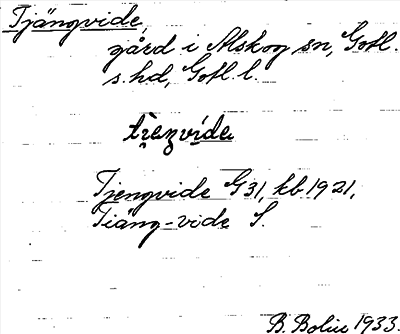 Tjängvide,
gård i Alskog sn, Gotl.
s. hd, Gotl. l.
Tjengvide G 31, kb 1921,
Tiäng-vide S.
B. Bolin 1933.